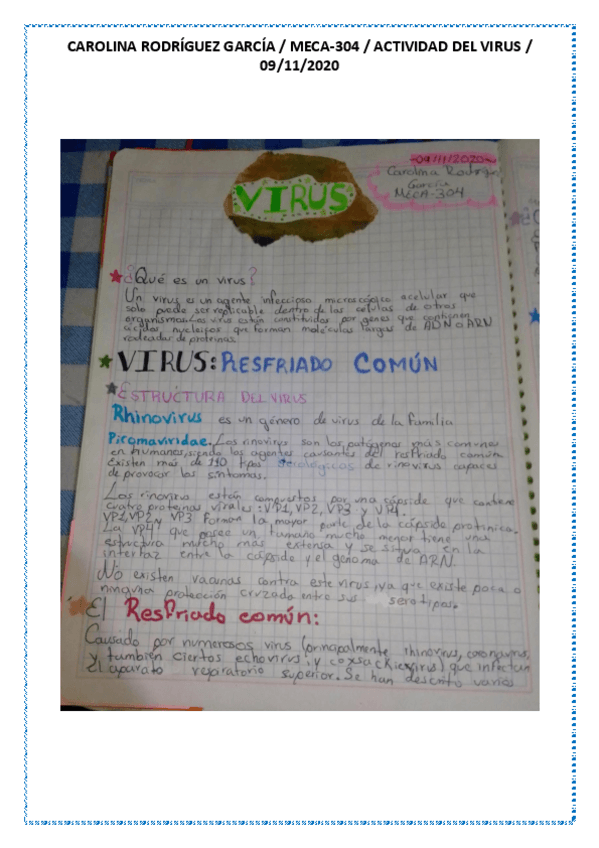 CAROLINA RODRÍGUEZ GARCÍA / MECA-304 / ACTIVIDAD DEL VIRUS /
09/11/2020
09/11/2020
Carolina Rodríguez
García
MECA-304
VIRUS
¿Qué es un virus?
Un virus es un agente infeccioso microscópico acelular que
solo puede ser replicable dentro de las células de otros
organismos. Los virus están constituidos por genes que contienen
ácidos nucleicos que forman moléculas largas de ADN o ARN
rodeadas de proteínas.
VIRUS: RESFRIADO COMÚN
ESTRUCTURA DEL VIRUS
Rhinovirus es un género de virus de la familia
Picornaviridae. Los rinovirus son los patógenos más comunes
en humanos, siendo los agentes causantes del resfriado común.
Existen más de 110 tipos serológicos de rinovirus capaces
de provocar los síntomas.
Los rinovirus están compuestos por una cápside que contiene
cuatro proteínas virales: VP1, VP2, VP3 y VP4.
VP1, VP2 y VP3 forman la mayor parte de la cápside proteínica.
La VP4 que posee un tamaño mucho menor tiene una
estructura mucho más extensa y se situa en la
interfaz entre la cápside y el genoma de ARN.
No existen vacunas contra este virus, ya que existe poca o
ninguna protección cruzada entre sus serotipos.
El Resfriado común:
Causado por numerosos virus (principalmente rhinovirus, coronavirus,
y también ciertos echovirus y coxsackievirus) que infectan
el aparato respiratorio superior. Se han descrito varios